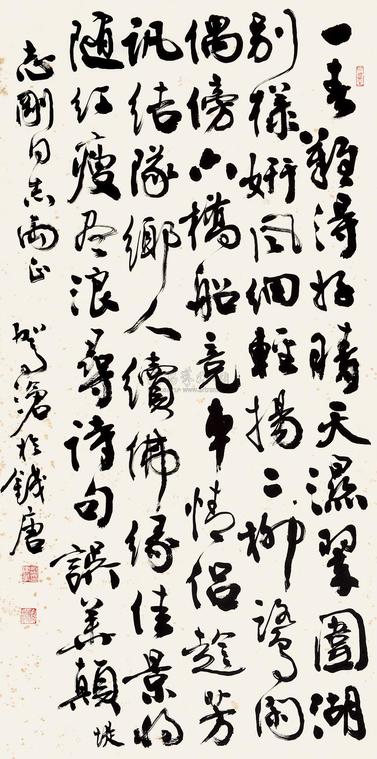 一春難得好晴天濕翠圍湖
别樣妍風細輕揚二柳鶯閑
偶傍六橋船競車情侶趁芳
訊結隊鄉人續佛緣佳景將
随紅瘦盡浪尋詩句誤華顛 堤
志剛同志兩正 滄於錢唐